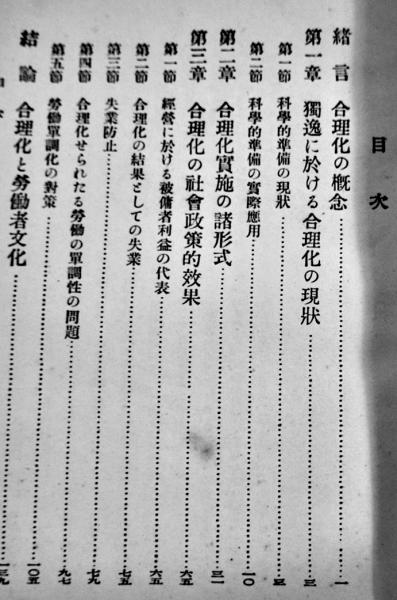 目次
緒言 合理化の概念……一
第一章 獨逸に於ける合理化の現狀……三
第一節 科學的準備の現狀……三
第二節 科學的準備の實際應用……一〇
第二章 合理化實施の諸形式……三一
第三章 合理化の社會政策的效果……六五
第一節 經營に於ける被傭者利益の代表……六五
第二節 合理化の結果としての失業……七五
第三節 失業防止……七九
第四節 合理化せられたる勞働の單調性の問題……九七
第五節 勞働單調化の對策……一〇五
結論 合理化と勞働者文化……一三九